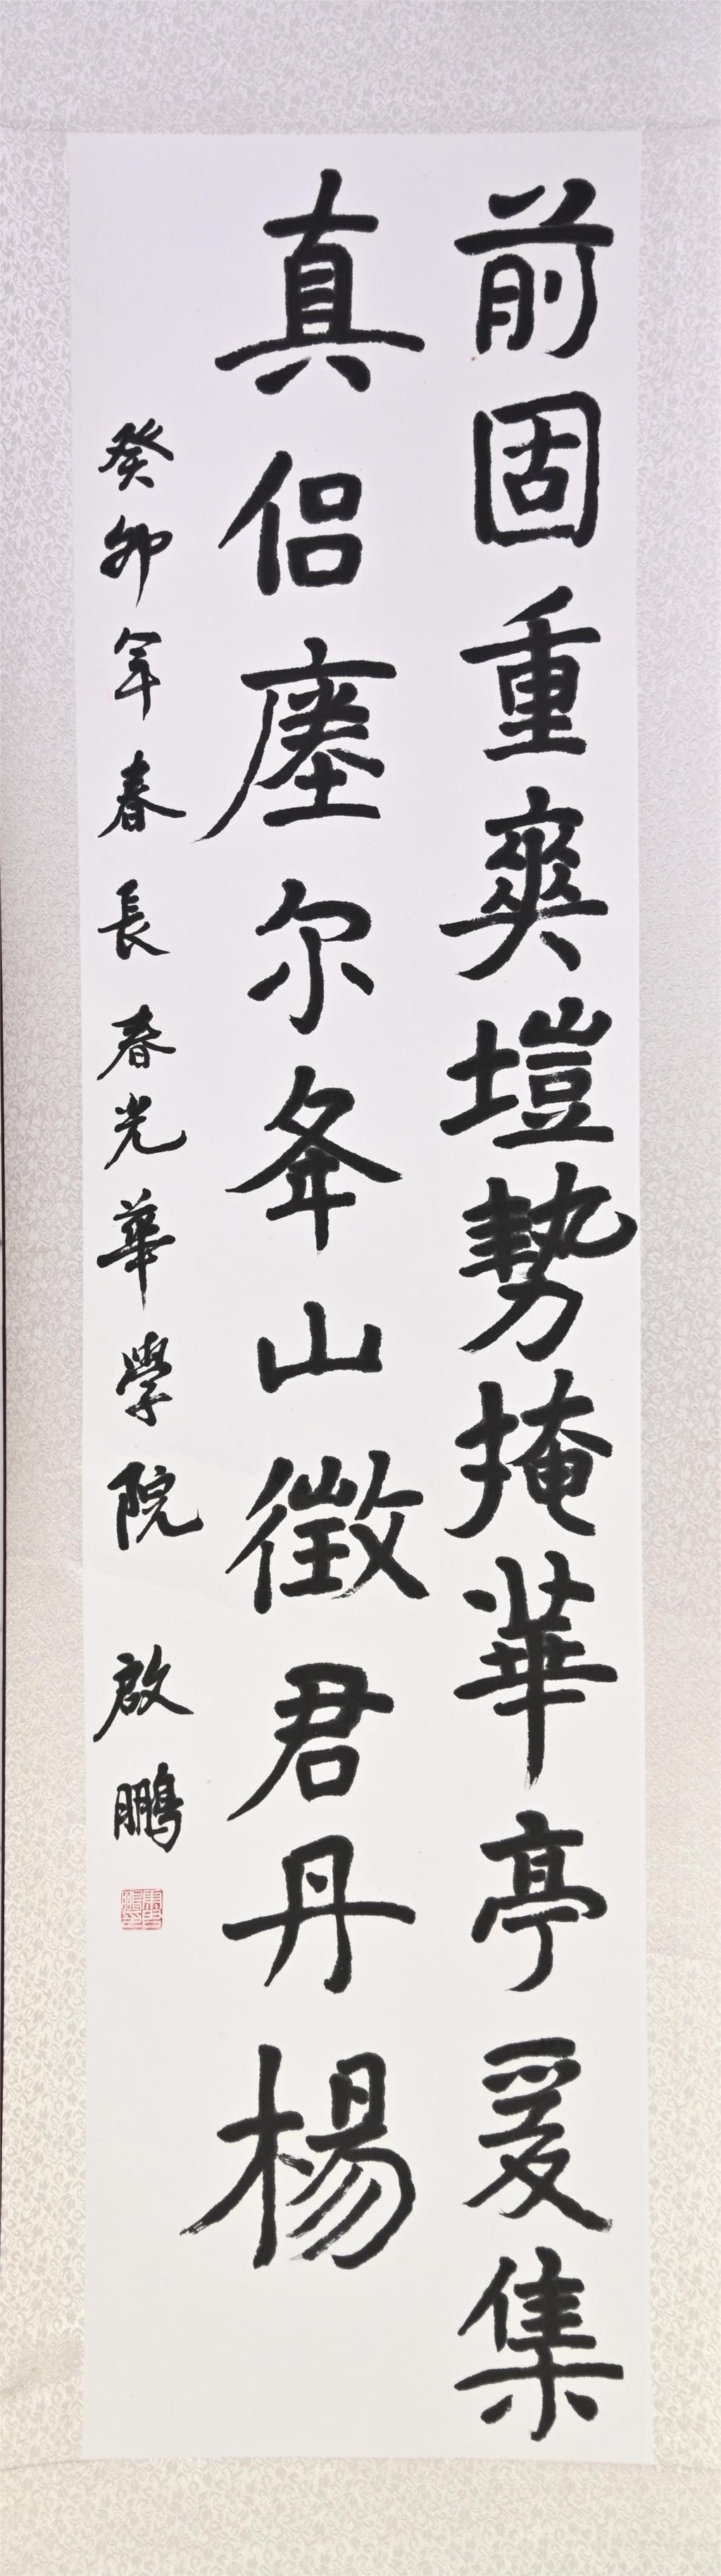 前固重爽塏勢掩華亭爰集
真侶瘞尔夅山徵君丹楊
癸卯年春長春光華學院 啟鵬